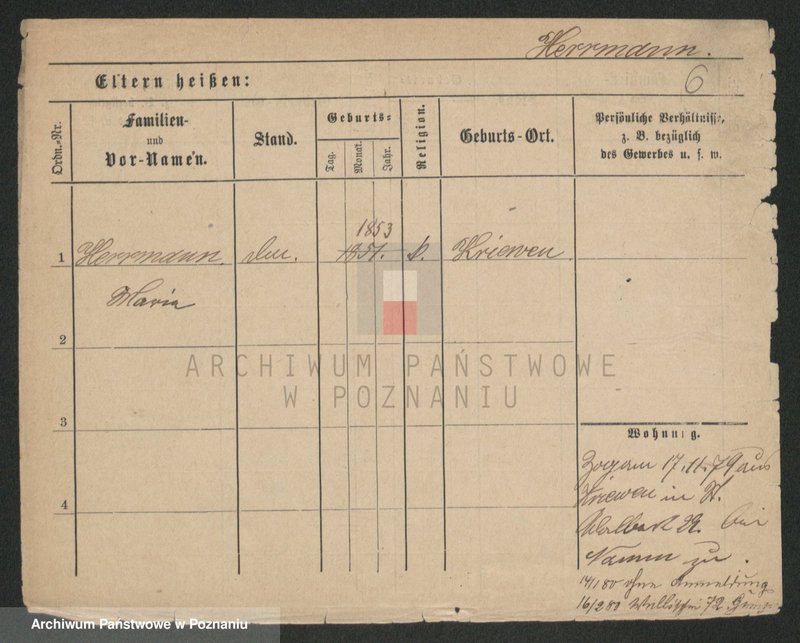 Herrmann.
6
Eltern heißen:
Ordn.-Nr.
Familien-
und
Vor-Namen.
Stand.
Geburts-
Tag.
Monat.
Jahr.
Religion.
Geburts-Ort.
Persönliche Verhältnisse,
z. B. bezüglich
des Gewerbes u. s. w.
1853
1 Herrmann 1851. k. Kriewen
Maria
2
3
4
ARCHIWUM PAŃSTWOWE
W POZNANIU
Wohnung.
Zog am 17.11.79 aus
Kriewen in St.
Adalbert 22. bei
zu.
14/1 80 ohne Anmeldung
16/2 80 Wallischei 72
Archiwum Państwowe w Poznaniu